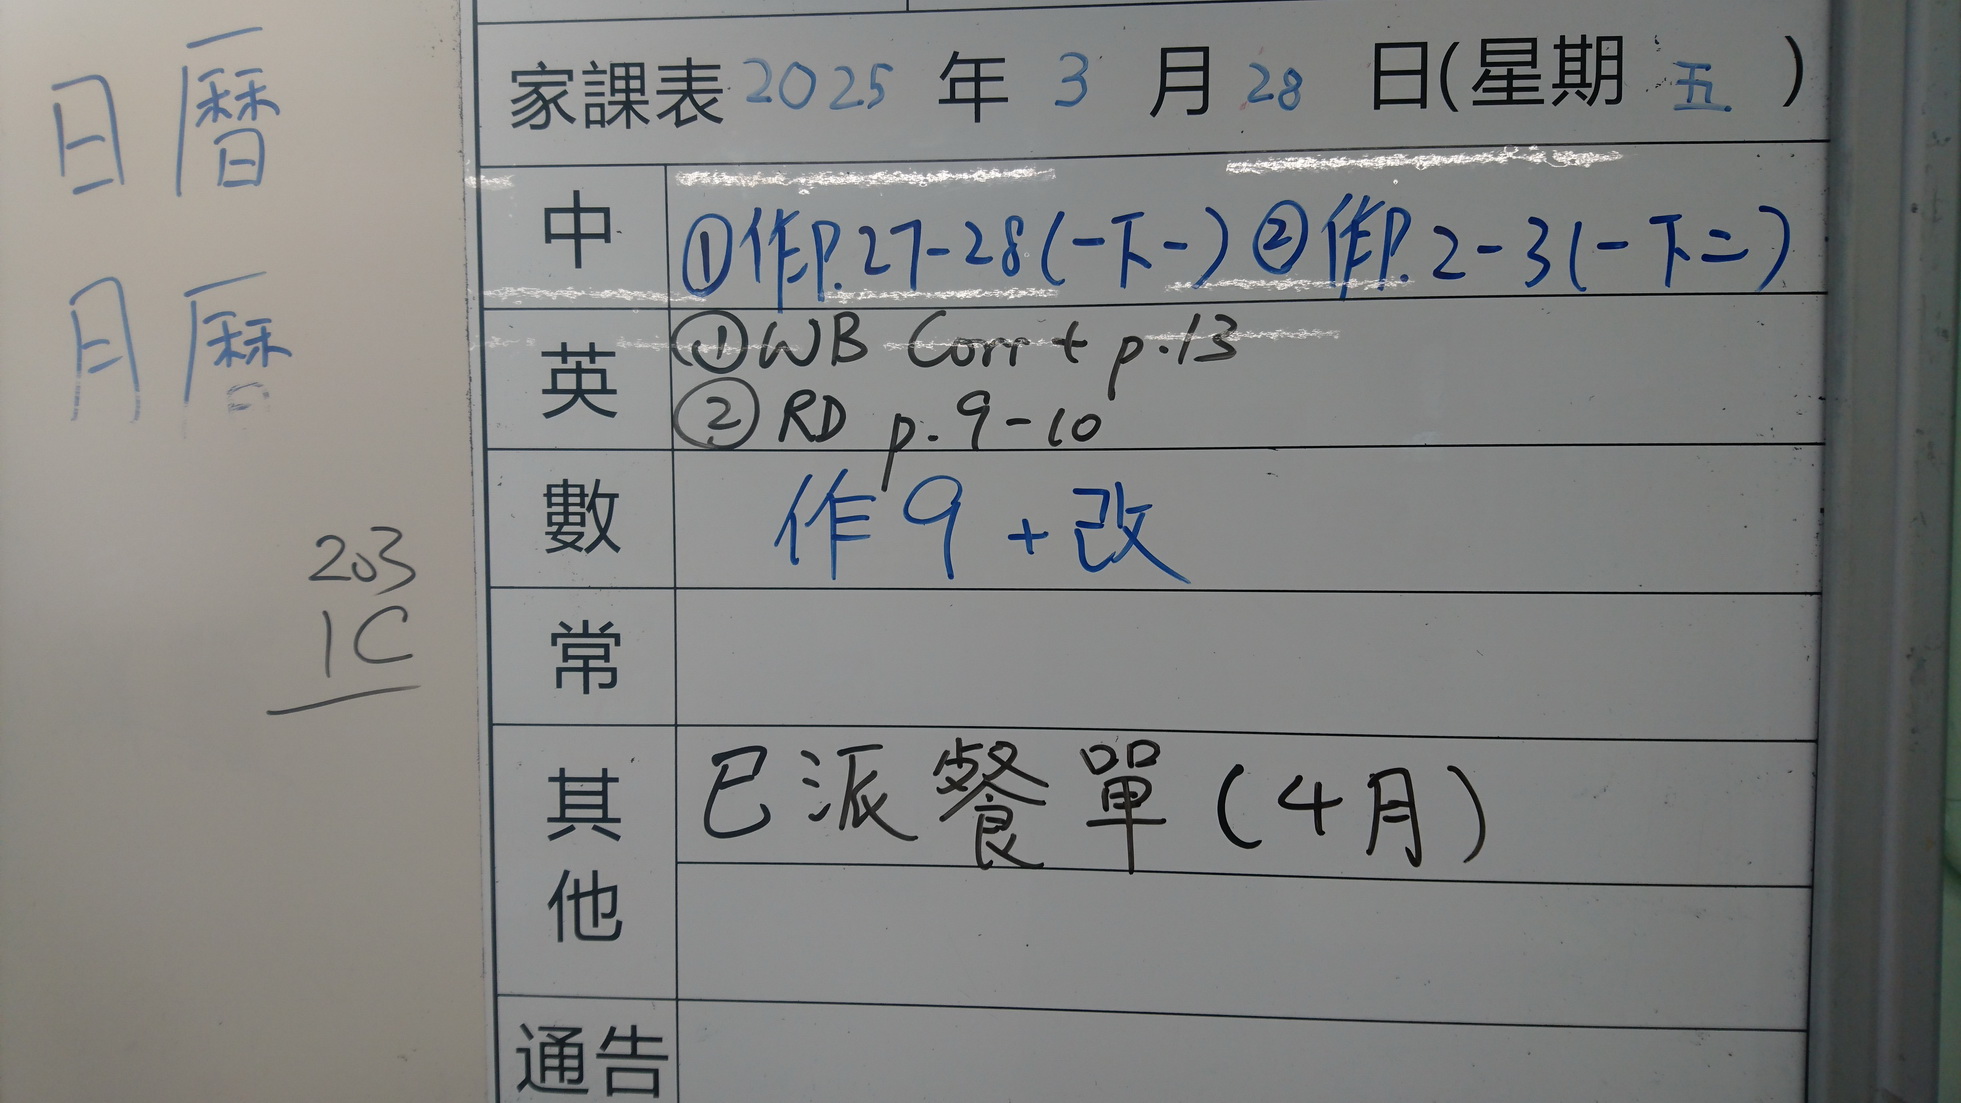 日曆
月曆
203
1C
家課表 2025 年 3 月 28 日(星期 五 )
中 ①作P.27-28(一下一) ②作P.2-3(一下二)
英 ①WB Corr + p.13
②RD p.9-10
數 作9+改
常
其他 已派餐單(4月)
通告